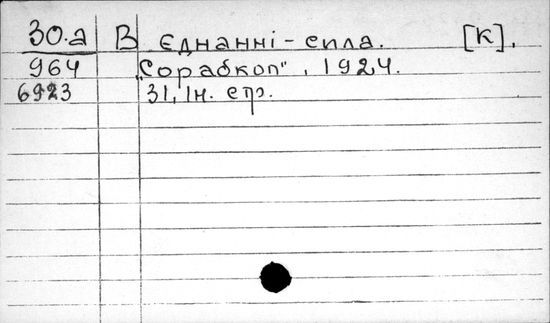 30.a В єднанні - сила. [К].
964 „Сорабкоп", 1924.
6923 31, Ін. стр.